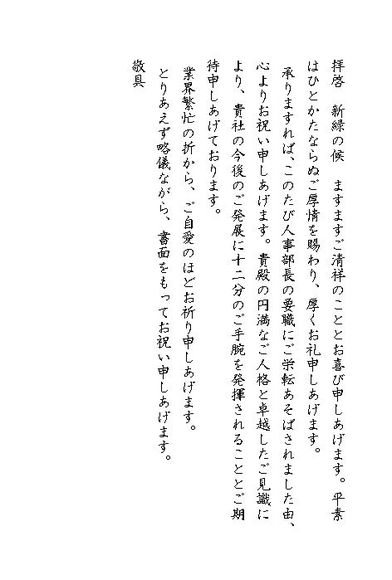 拝啓　新緑の候　ますますご清祥のこととお喜び申しあげます。平素
はひとかたならぬご厚情を賜わり、厚くお礼申しあげます。
　承りますれば、このたび人事部長の要職にご栄転あそばされました由、
心よりお祝い申しあげます。貴殿の円満なご人格と卓越したご見識に
より、貴社の今後のご発展に十二分のご手腕を発揮されることとご期
待申しあげております。
　業界繁忙の折から、ご自愛のほどお祈り申しあげます。
　とりあえず略儀ながら、書面をもってお祝い申しあげます。
敬具